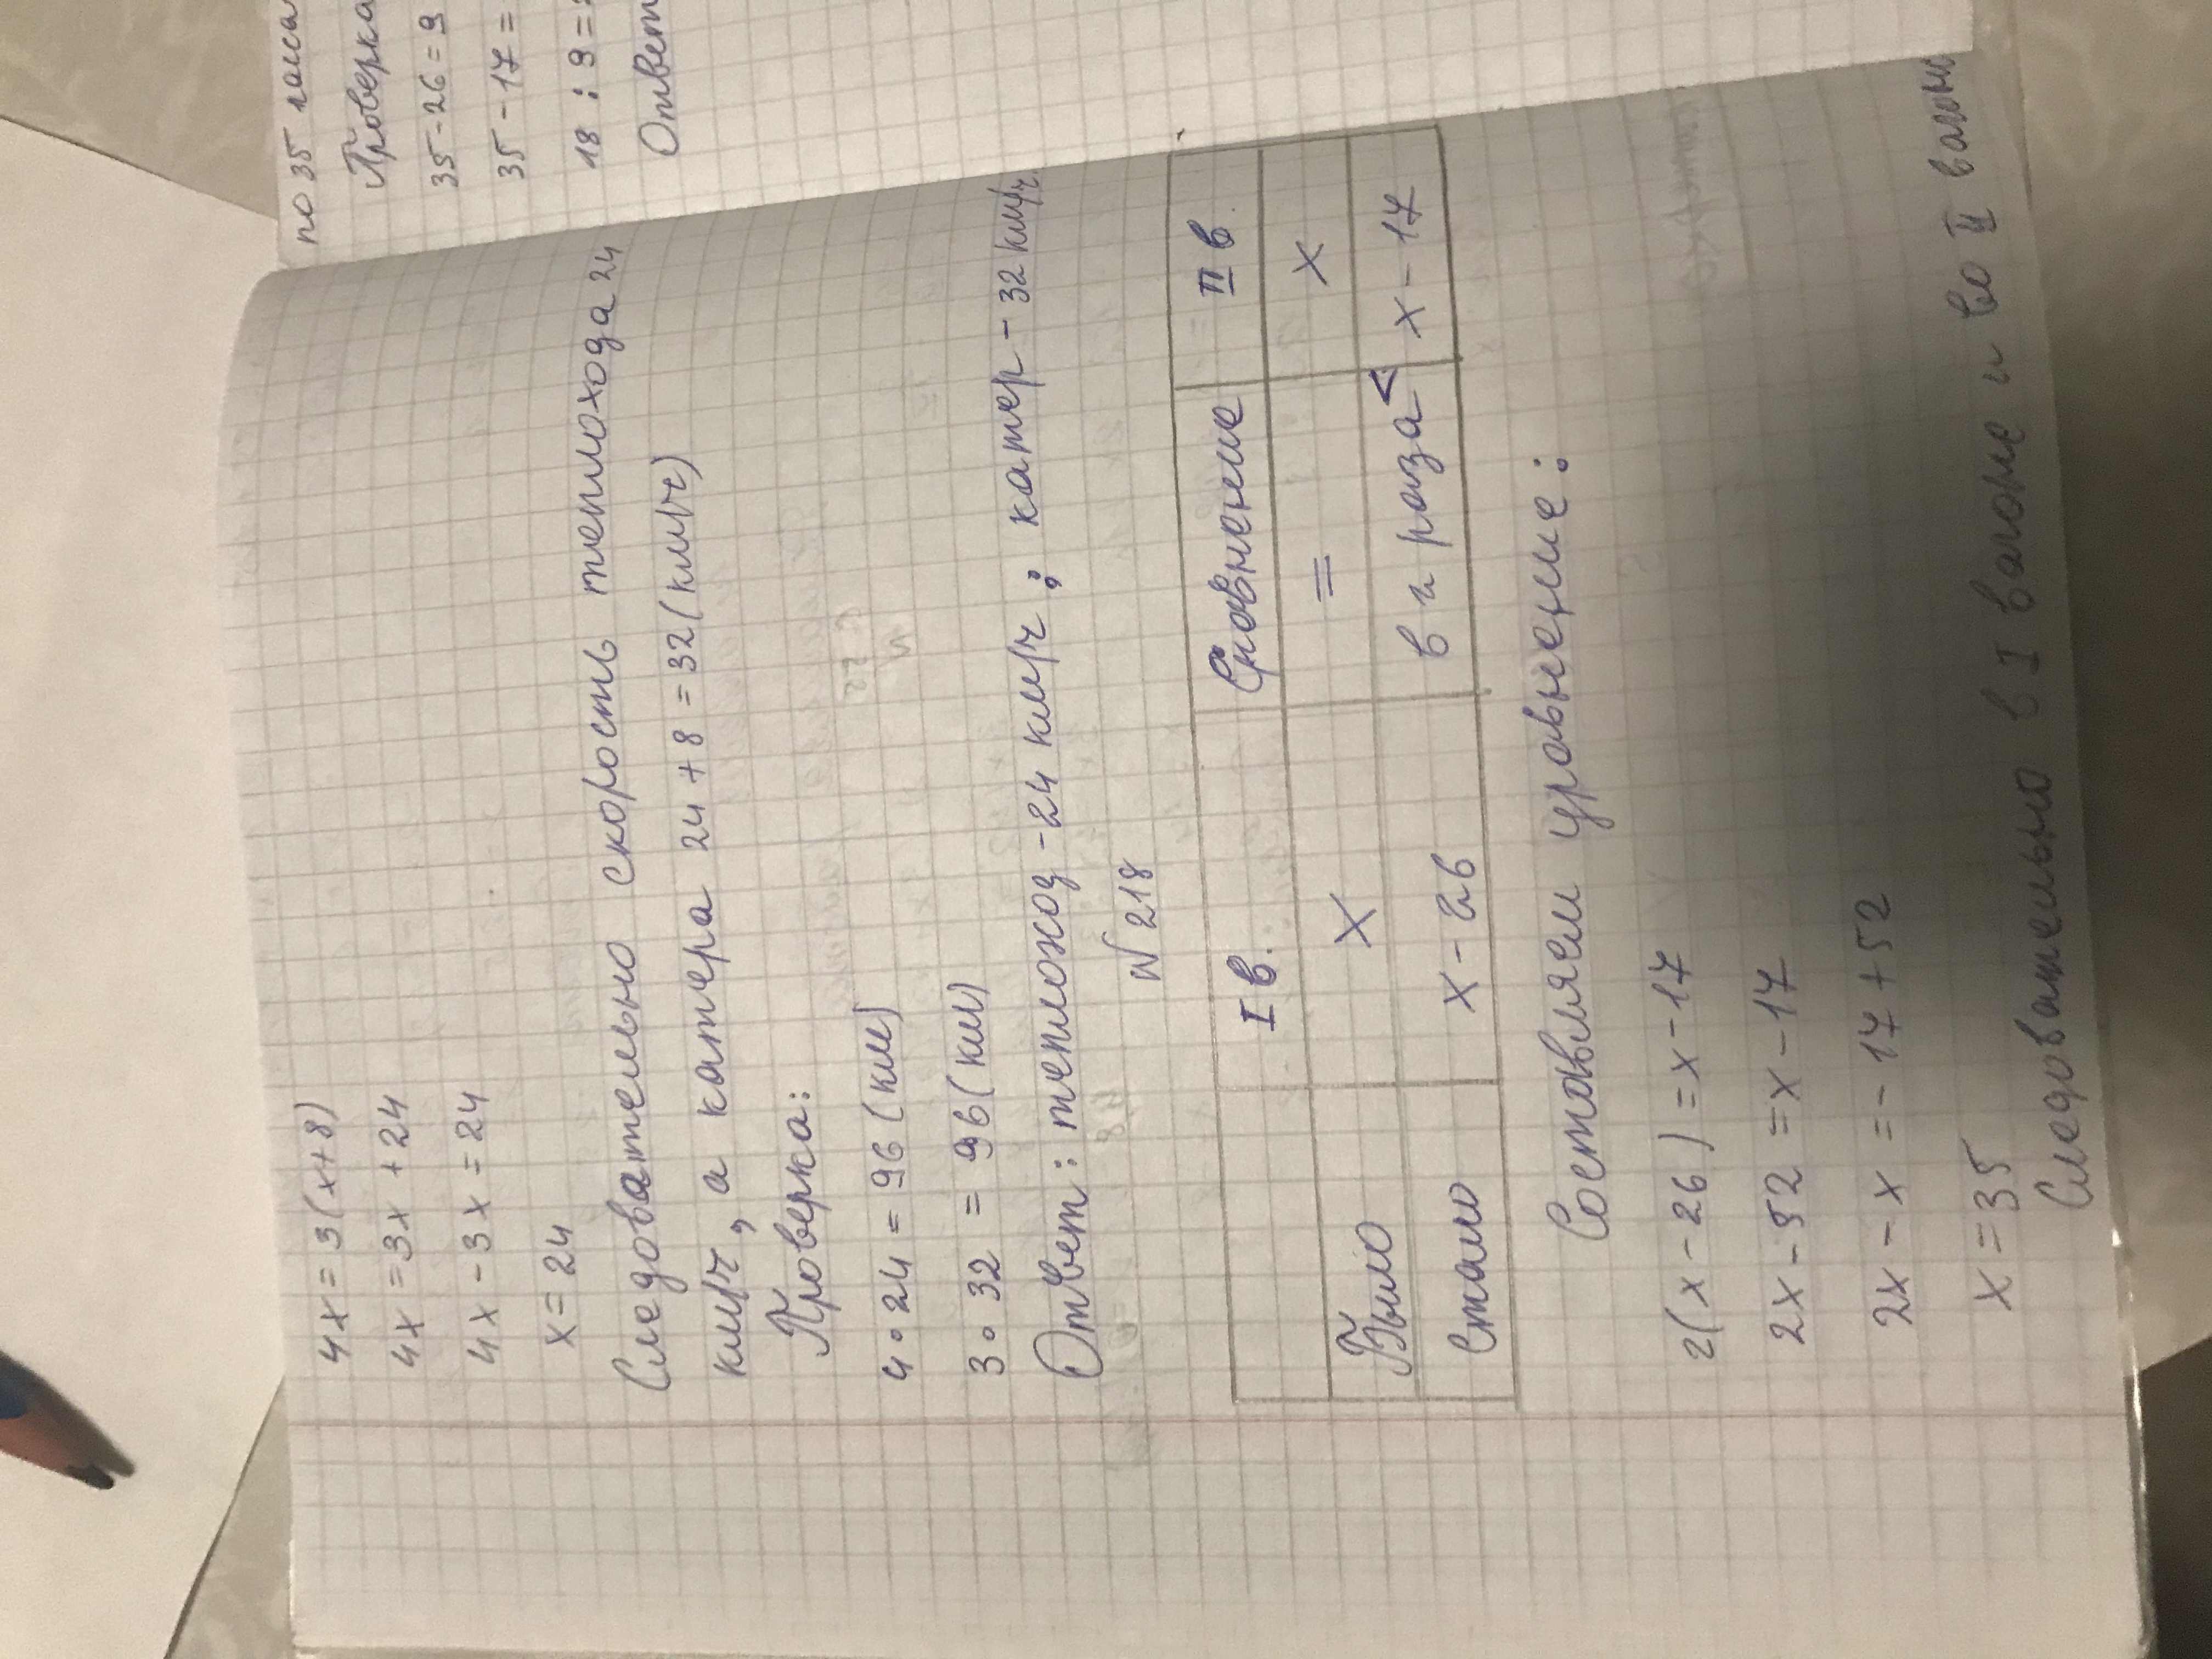 4x=3(x+8)
4x=3x+24
4x-3x=24
x=24
Следовательно скорость теплохода 24
км/ч, а катера 24+8=32(км/ч)
Проверка:
4•24=96(км)
3•32=96(км)
Ответ: теплоход-24 км/ч; катер-32км/ч
N218
I в. Сравнение II в.
Было x = x
Стало x-26 в 2 раза< x-17
Составляем уравнение:
2(x-26)=x-17
2x-52=x-17
2x-x=-17+52
x=35
Следовательно в I вагоне и во II вагоне
по 35
Проверка
35-26=9
35-17=
18:9=
Ответ